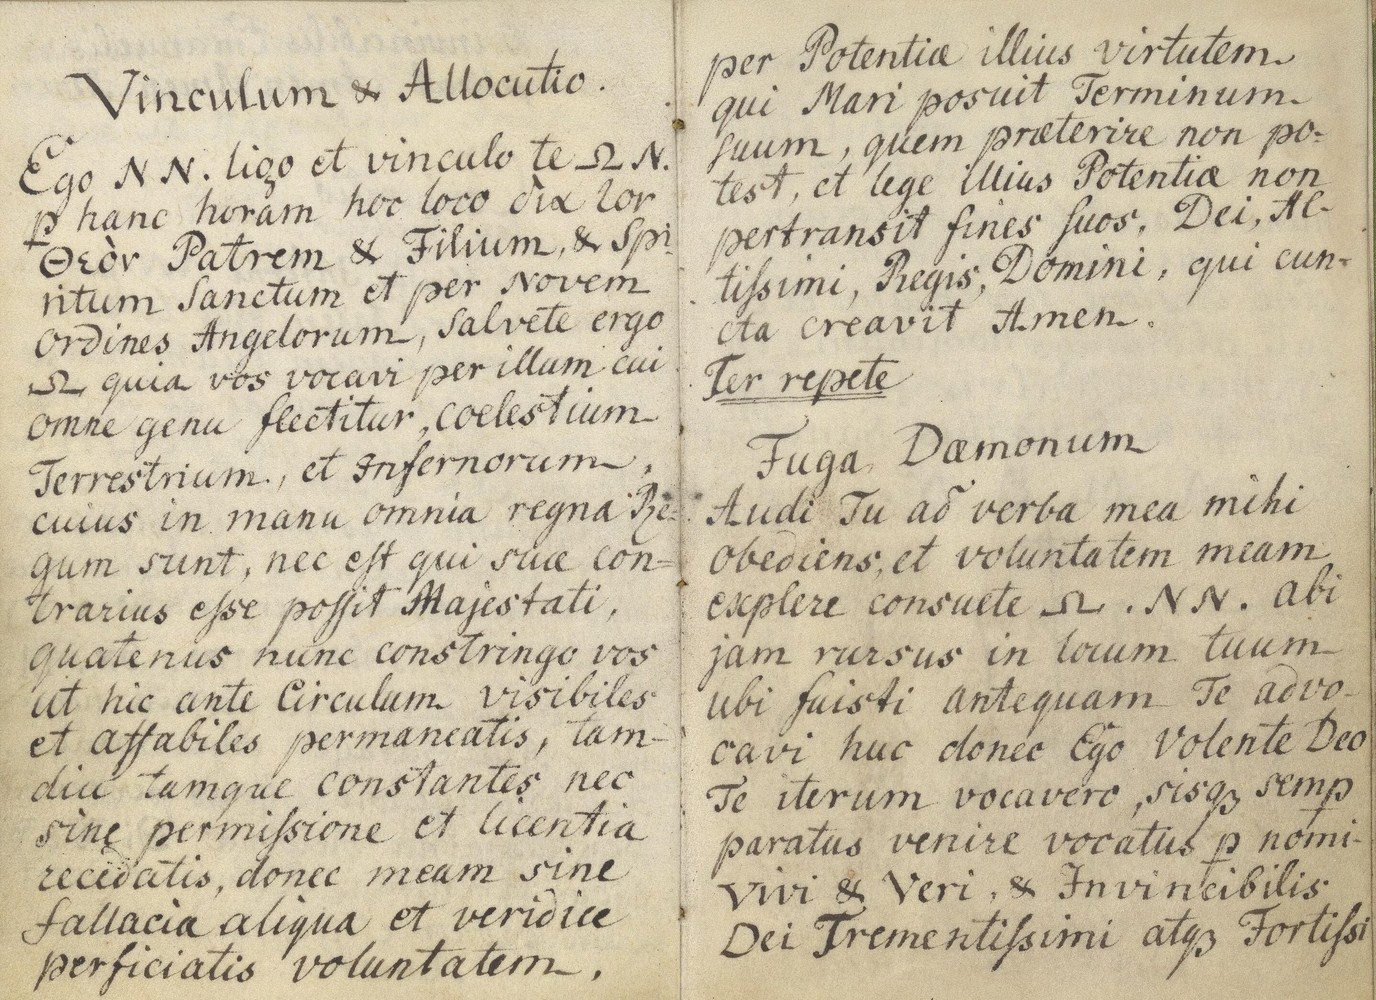 Vinculum & Allocutio.
Ego N N. ligo et vinculo te Ω N.
ꝑ hanc horam hoc loco διὰ τον
Θεὸν Patrem & Filium, & Spi-
ritum Sanctum et per Novem
Ordines Angelorum, Salvete ergo
Ω quia vos vocavi per illum cui
omne genu flectitur, Coelestium
Terrestrium, et Infernorum,
cuius in manu omnia regna Re=
gum sunt, nec est qui suæ con=
trarius esse possit Majestati,
quatenus nunc constringo vos
ut hic ante Circulum visibiles
et affabiles permaneatis, tam-
diu tamque constantes nec
sine permissione et licentia
recedatis, donec meam sine
fallacia aliqua et veridice
perficiatis voluntatem,
per Potentiæ illius virtutem
qui Mari posuit Terminum
suum, quem præterire non po-
test, et lege illius Potentiæ non
pertransit fines suos, Dei, Al-
tissimi, Regis, Domini, qui cun-
cta creavit Amen.
Ter repete
Fuga Dæmonum
Audi Tu ad verba mea mihi
obediens, et voluntatem meam
explere consuete Ω. N N. abi
jam rursus in locum tuum
ubi fuisti antequam Te advo-
cavi huc donec Ego Volente Deo
Te iterum vocavero, sisqꝫ semꝑ
paratus venire vocatus ꝑ nomi-
Vivi & Veri, & Invincibilis
Dei Trementissimi atqꝫ Fortissi